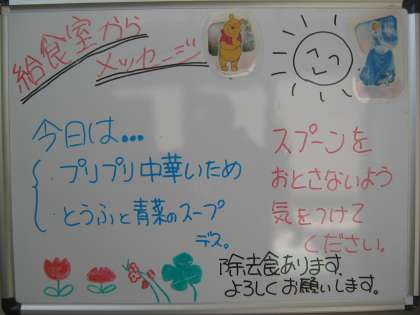 給食室から
メッセージ
今日は...
・プリプリ中華いため
・とうふと青菜のスープ
デス。
スプーンを
おとさないよう
気をつけて
ください。
除去食あります。
よろしくお願いします。